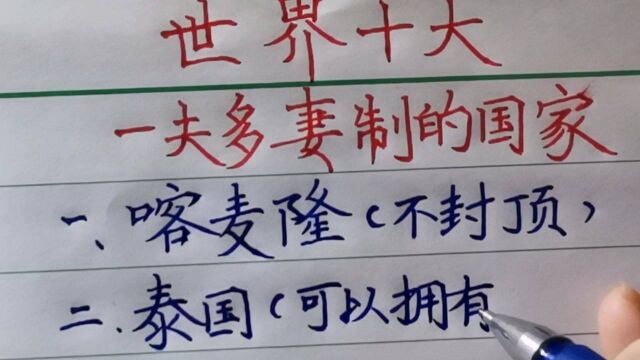 世界十大
一夫多妻制的国家
一、喀麦隆(不封顶)
二.泰国(可以拥有